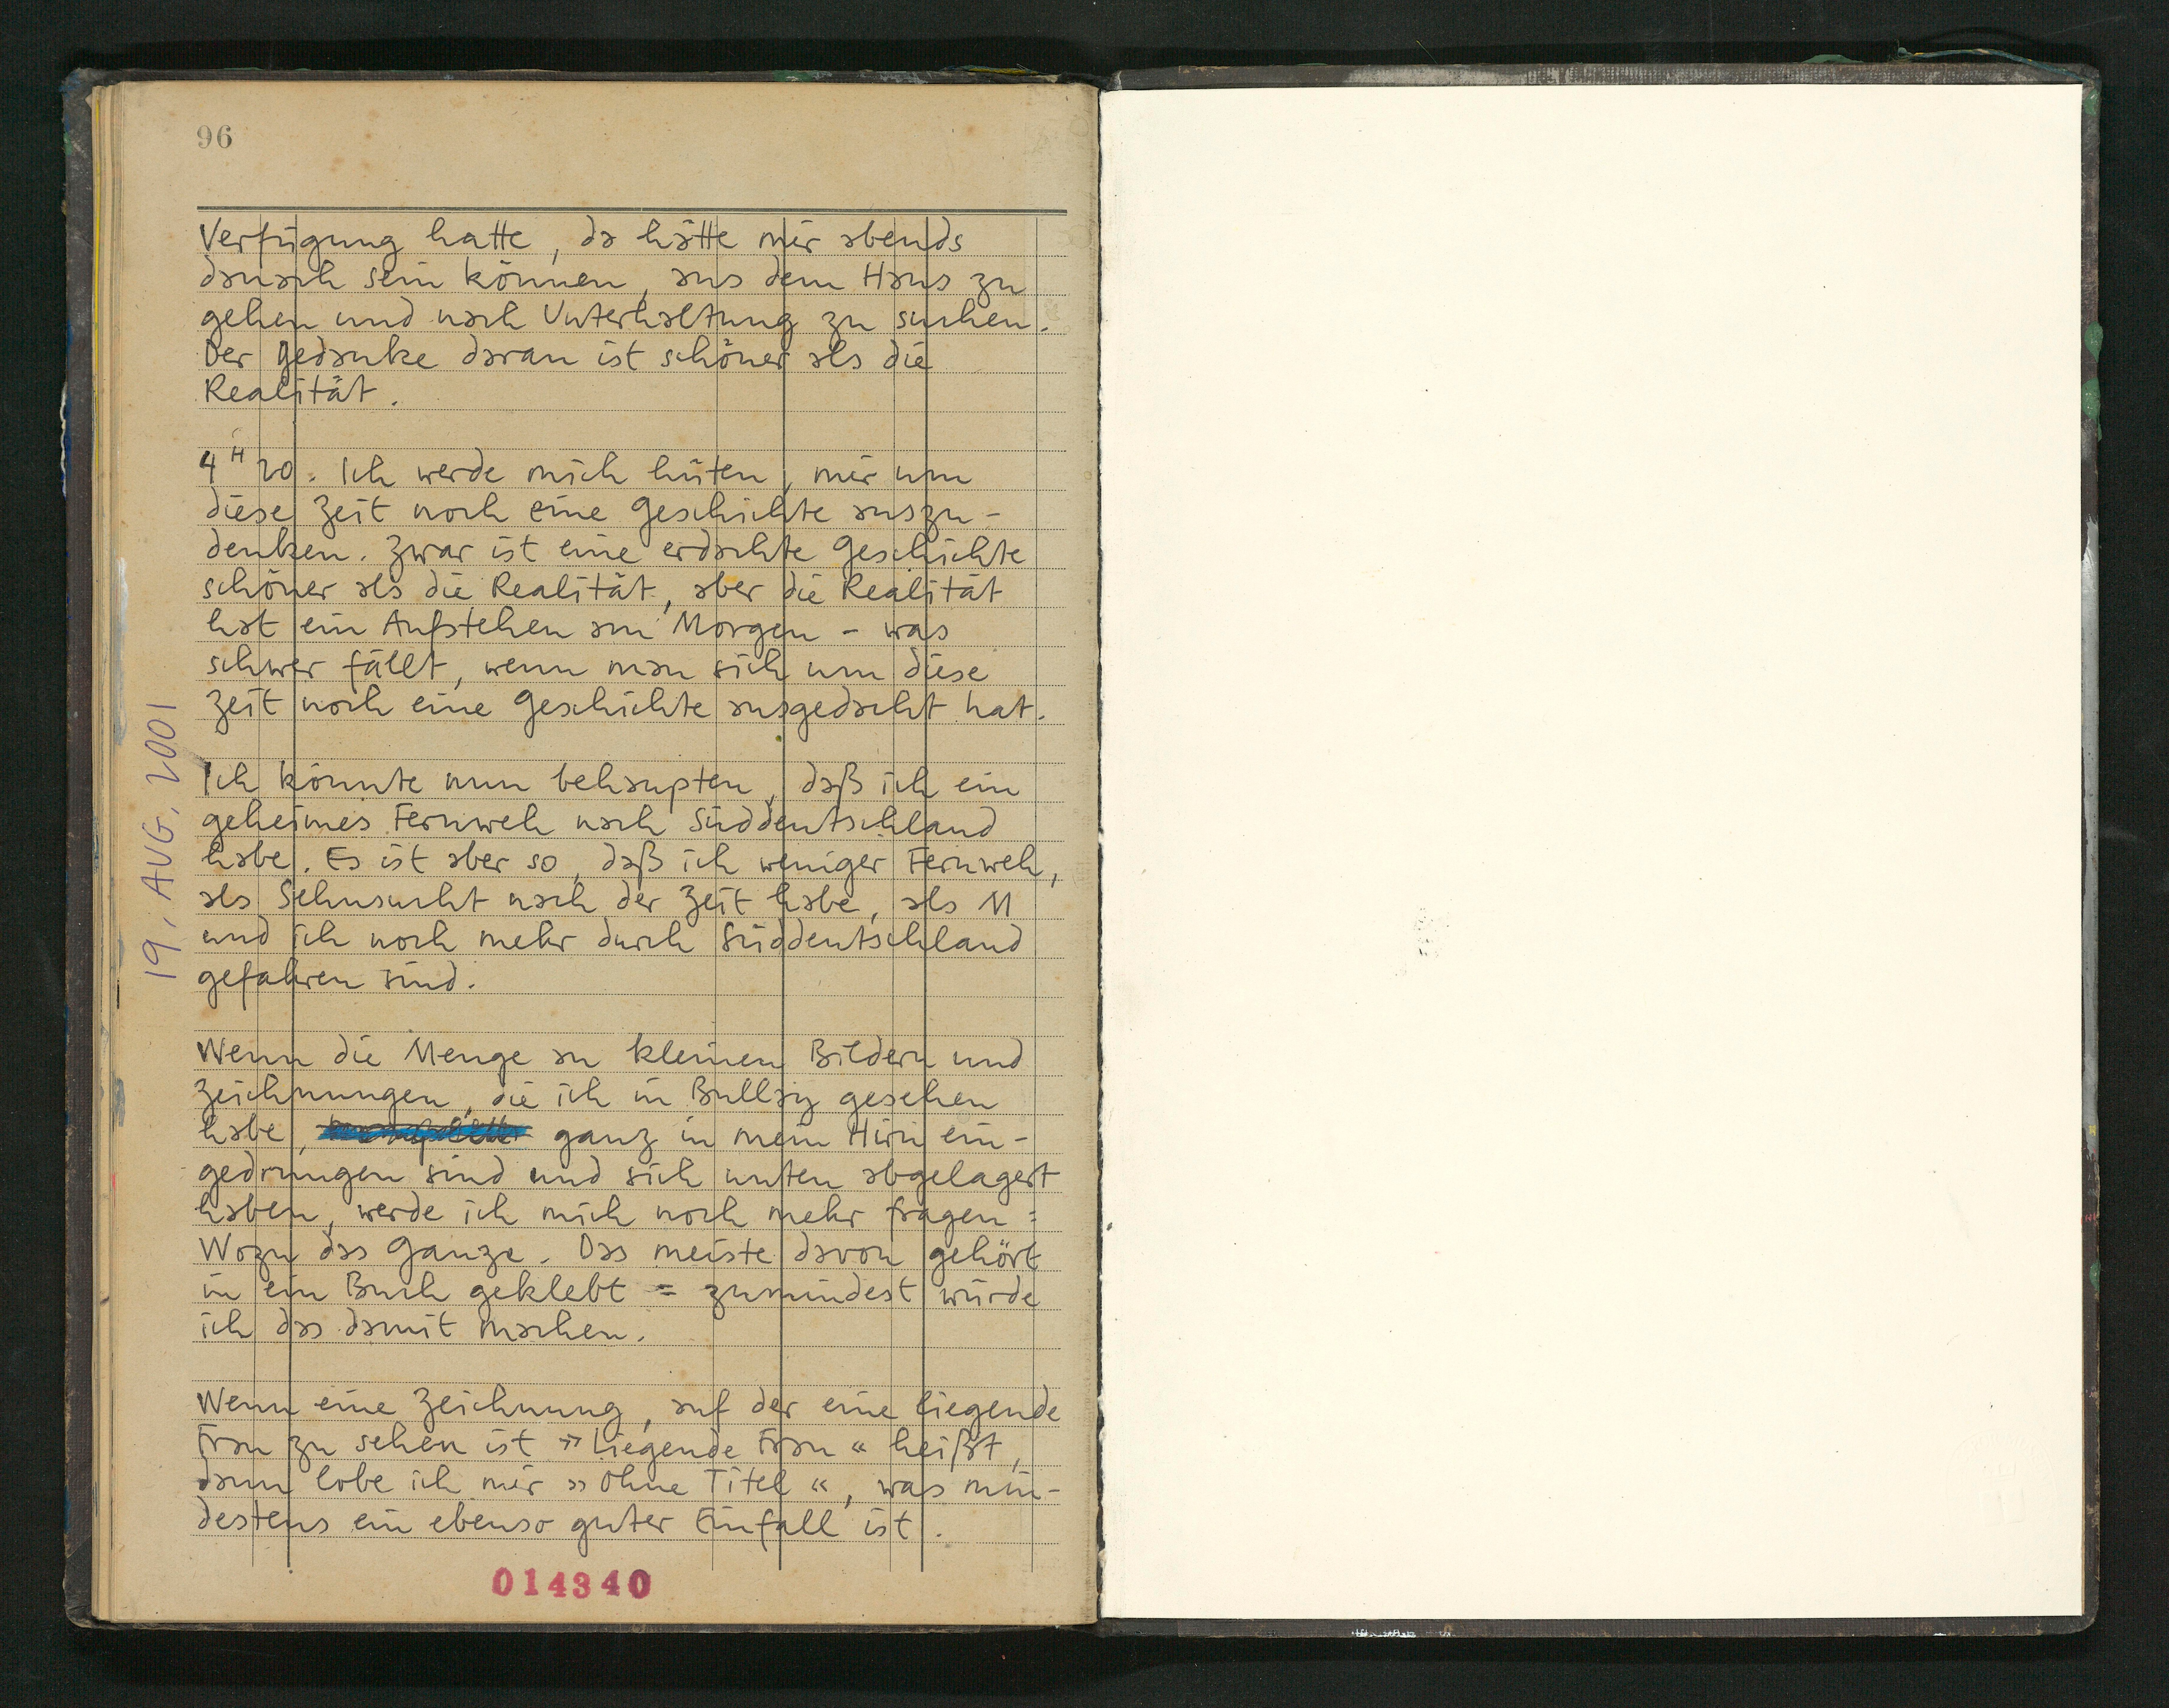 96
Verfügung hatte, da hätte mir abends
danach sein können, aus dem Haus zu
gehen und nach Unterhaltung zu suchen.
Der Gedanke daran ist schöner als die
Realität.
4 H 20. Ich werde mich hüten, mir um
diese Zeit noch eine Geschichte auszu-
denken. Zwar ist eine erdachte Geschichte
schöner als die Realität, aber die Realität
hat ein Aufstehen am Morgen - was
schwer fällt, wenn man sich um diese
Zeit noch eine Geschichte ausgedacht hat.
19. AUG. 2001
Ich könnte nun behaupten, daß ich ein
geheimes Fernweh nach Süddeutschland
habe. Es ist aber so, daß ich weniger Fernweh,
als Sehnsucht nach der Zeit habe, als M
und ich noch mehr durch Süddeutschland
gefahren sind.
Wenn die Menge an kleinen Bildern und
Zeichnungen, die ich in Bullay gesehen
habe, ganz in mein Hirn ein-
gedrungen sind und sich unten abgelagert
haben, werde ich mich noch mehr fragen:
Wozu das Ganze. Das meiste davon gehört
in ein Buch geklebt = zumindest würde
ich das damit machen.
Wenn eine Zeichnung, auf der eine liegende
Frau zu sehen ist »Liegende Frau« heißt,
dann lobe ich mir »Ohne Titel«, was min-
destens ein ebenso guter Einfall ist.
014340